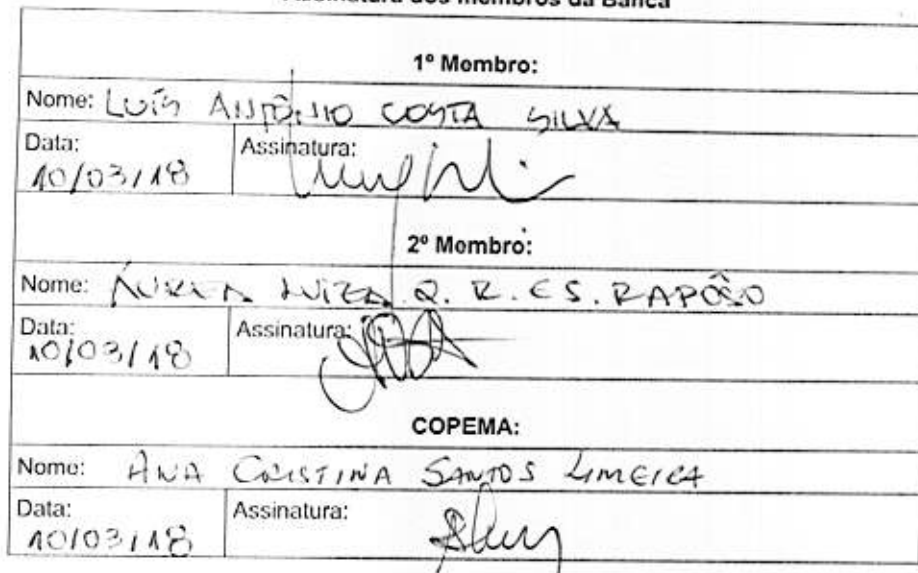 Assinatura dos membros da Banca
1º Membro:
Nome: LUÍS ANTÔNIO COSTA SILVA
Data: Assinatura:
10/03/18
2º Membro:
Nome: ÁUREA LUIZA Q. R. E S. RAPÔSO
Data: Assinatura:
10/03/18
COPEMA:
Nome: ANA CRISTINA SANTOS LIMEIRA
Data: Assinatura:
10/03/18